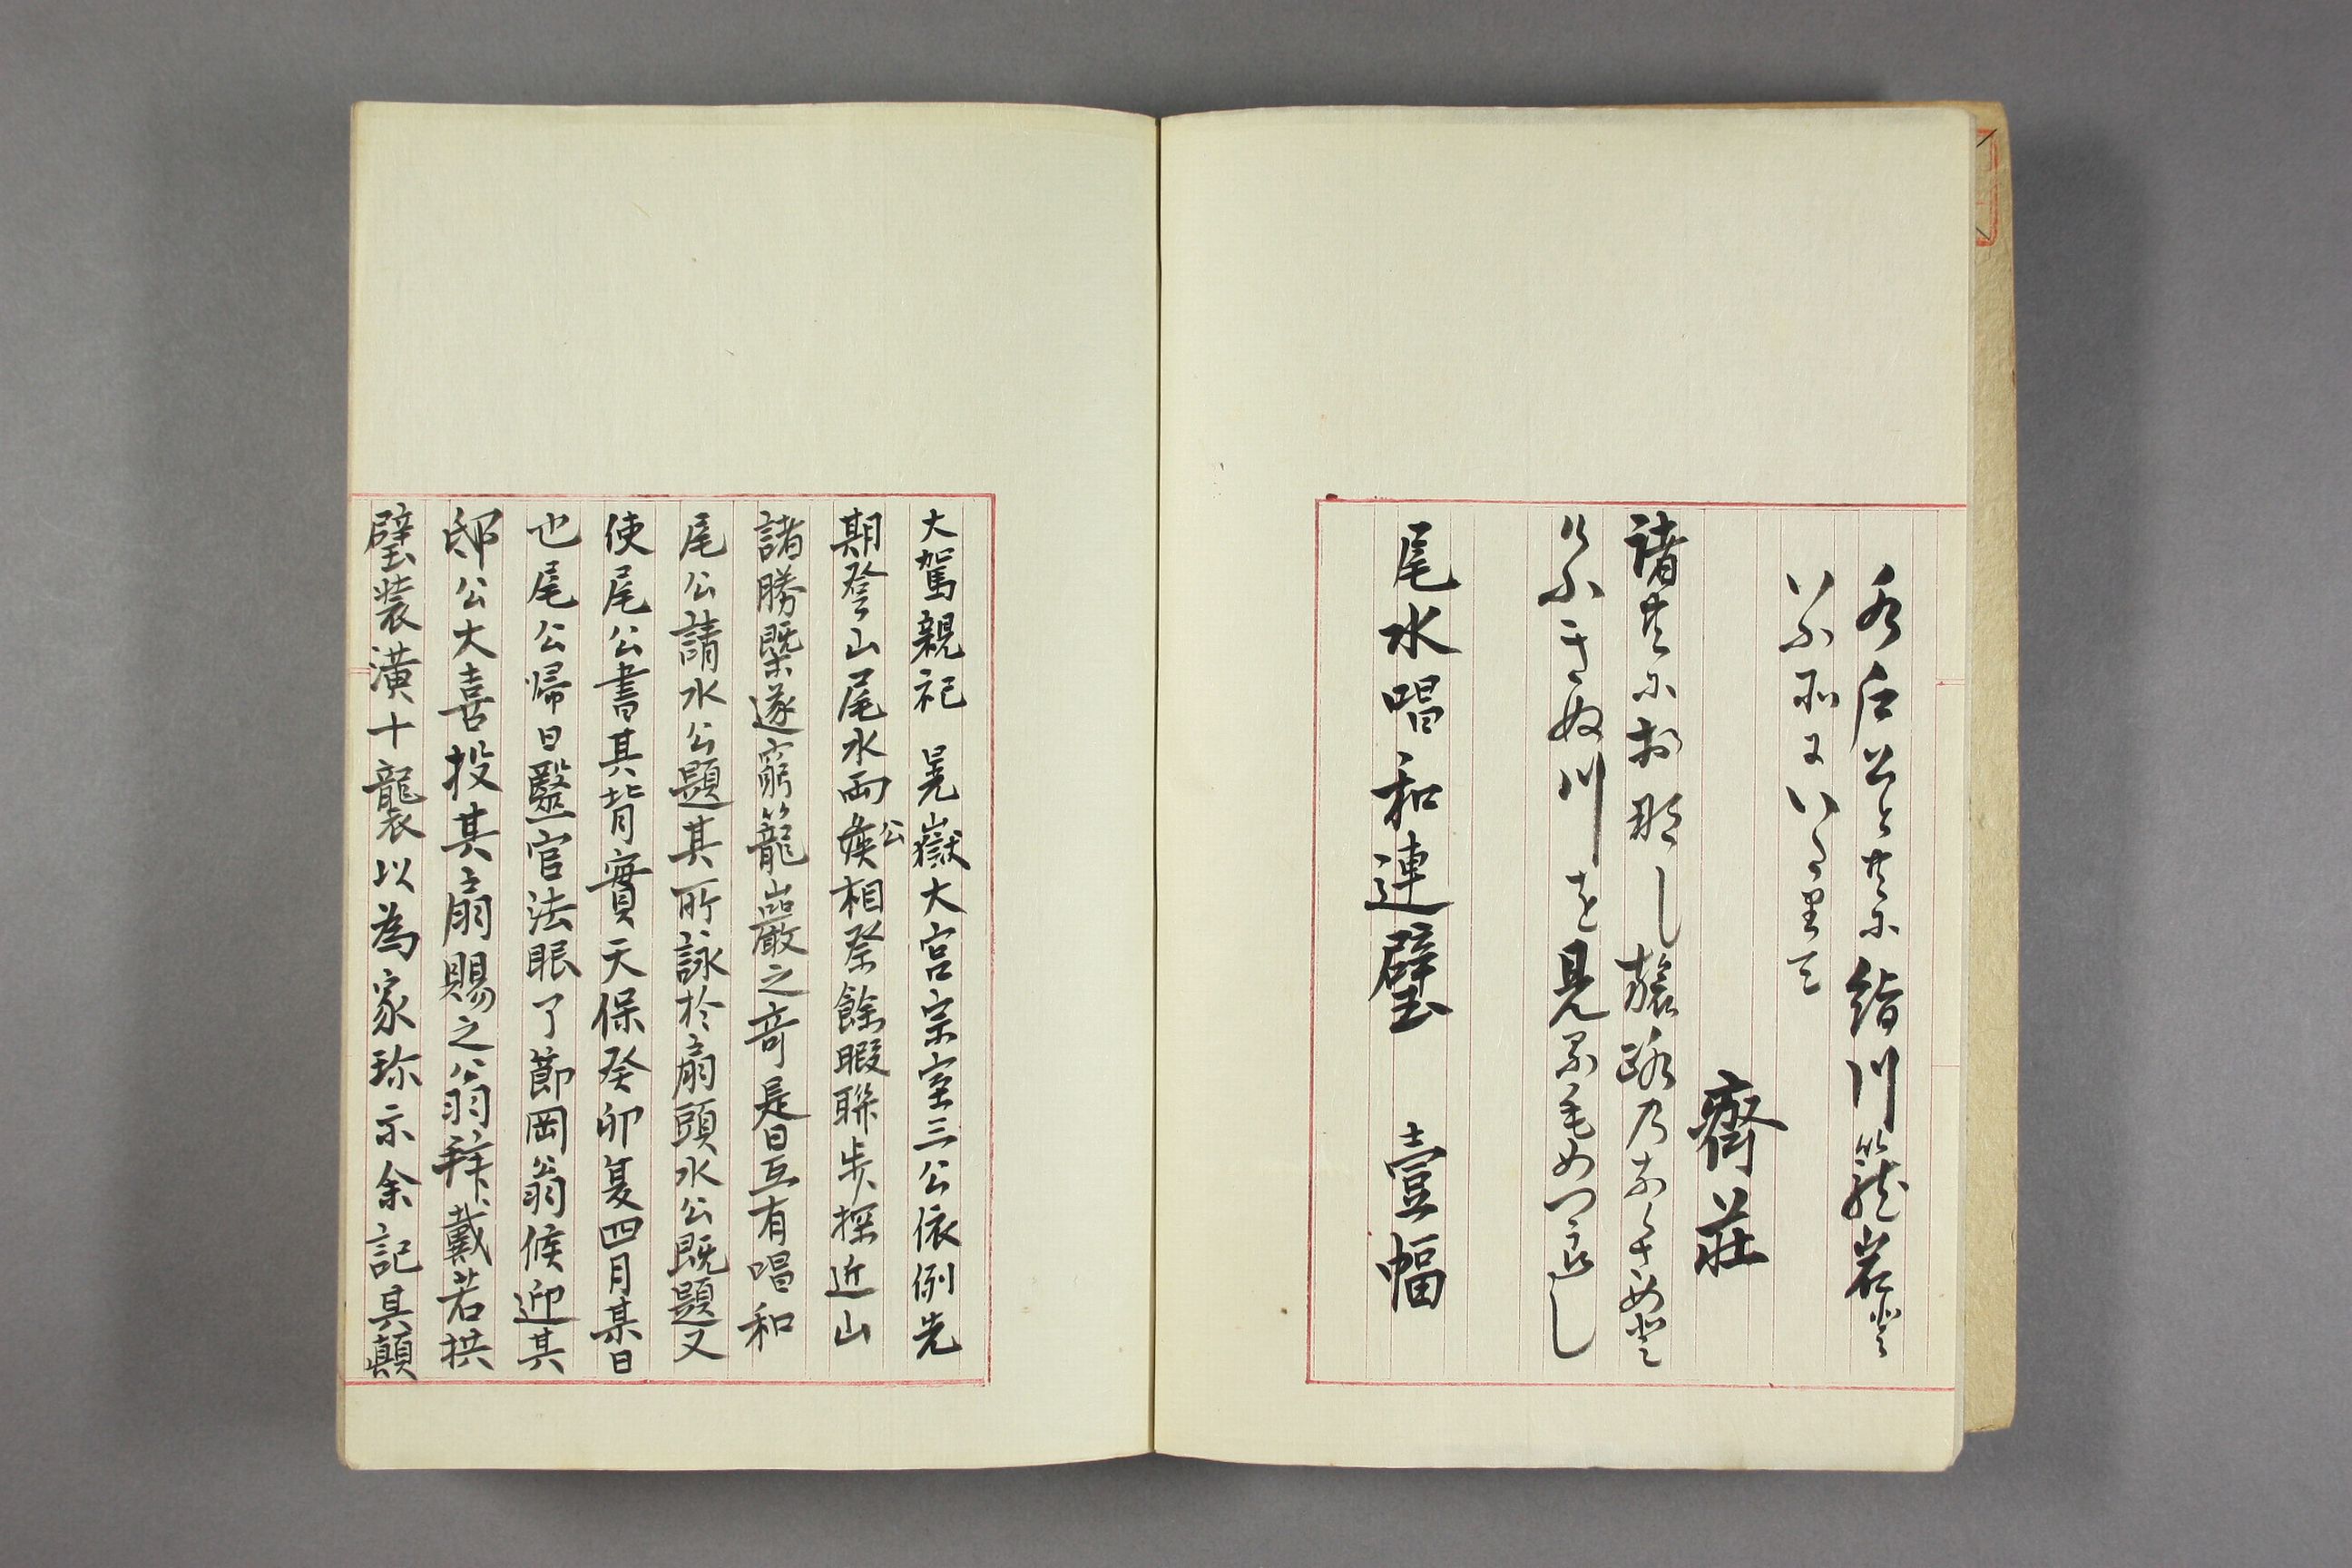 水戸公と共に詣川籠岩登
いふ所にいたりて
齊荘
諸共に
尾水唱和連璧　壹幅
大駕親祀　晃嶽大宮宗室三公依例先
期登山尾水両矦公相祭餘暇聯歩探近山
諸勝槩遂窮籠巖之竒是日互有唱和
尾公請水公題其所詠於扇頭水公既題又
使尾公書其背實天保癸卯夏四月某日
也尾公帰日毉官法眼了節岡翁候迎其
邸公大喜投其扇賜之翁拜戴若拱
璧装潢十襲以為家珎示余記其顛